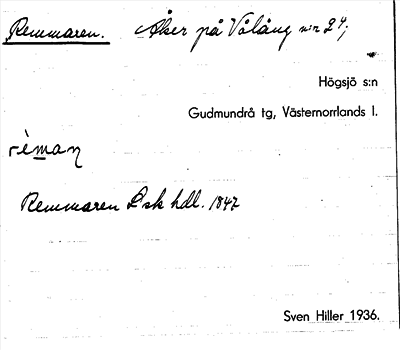 Remmaren. Åker på Vålång n:r 2⁴;
Högsjö s:n
Gudmundrå tg, Västernorrlands l.
rèmaɳ
Remmaren Lsk hdl. 1847
Sven Hiller 1936.